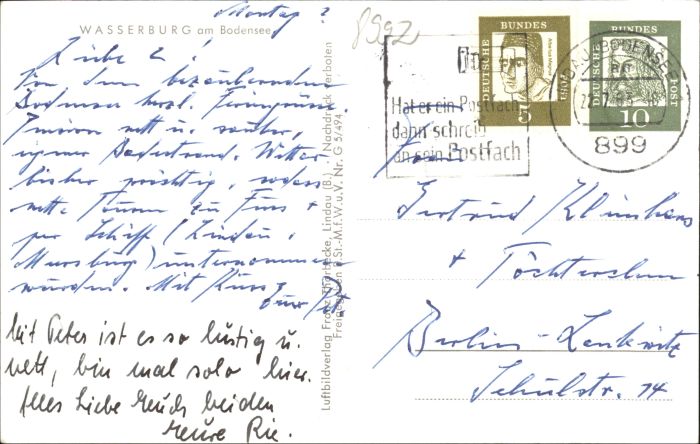 Montag
8992
WASSERBURG am Bodensee
Liebe 2!
Von dem bezaubernden
Bodensee herzl. Feriengrüsse.
Zimmer nett u. sauber,
eigener Badestrand. Wetter
bisher prächtig, sodass
nette Touren zu Fuss +
per Schiff (Lindau,
Meersburg) unternommen
wurden. Mit Kuss
Euer
Mit Peter ist es so lustig u.
nett, bin mal solo hier.
Alles Liebe Euch beiden
Eure Rie.
Luftbildverlag Franz Thorbecke, Lindau (B.) - Nachdruck verboten
Freigegeben d. St.-M.f.W.u.V. Nr. G 5/494
Hat er ein Postfach
dann schreib
an sein Postfach
DEUTSCHE BUNDESPOST
5
DEUTSCHE BUNDESPOST
10
BODENSEE
899
Frau
Gertrud Klinkers
+ Töchterchen
Berlin-Lankwitz
Schulstr. 14